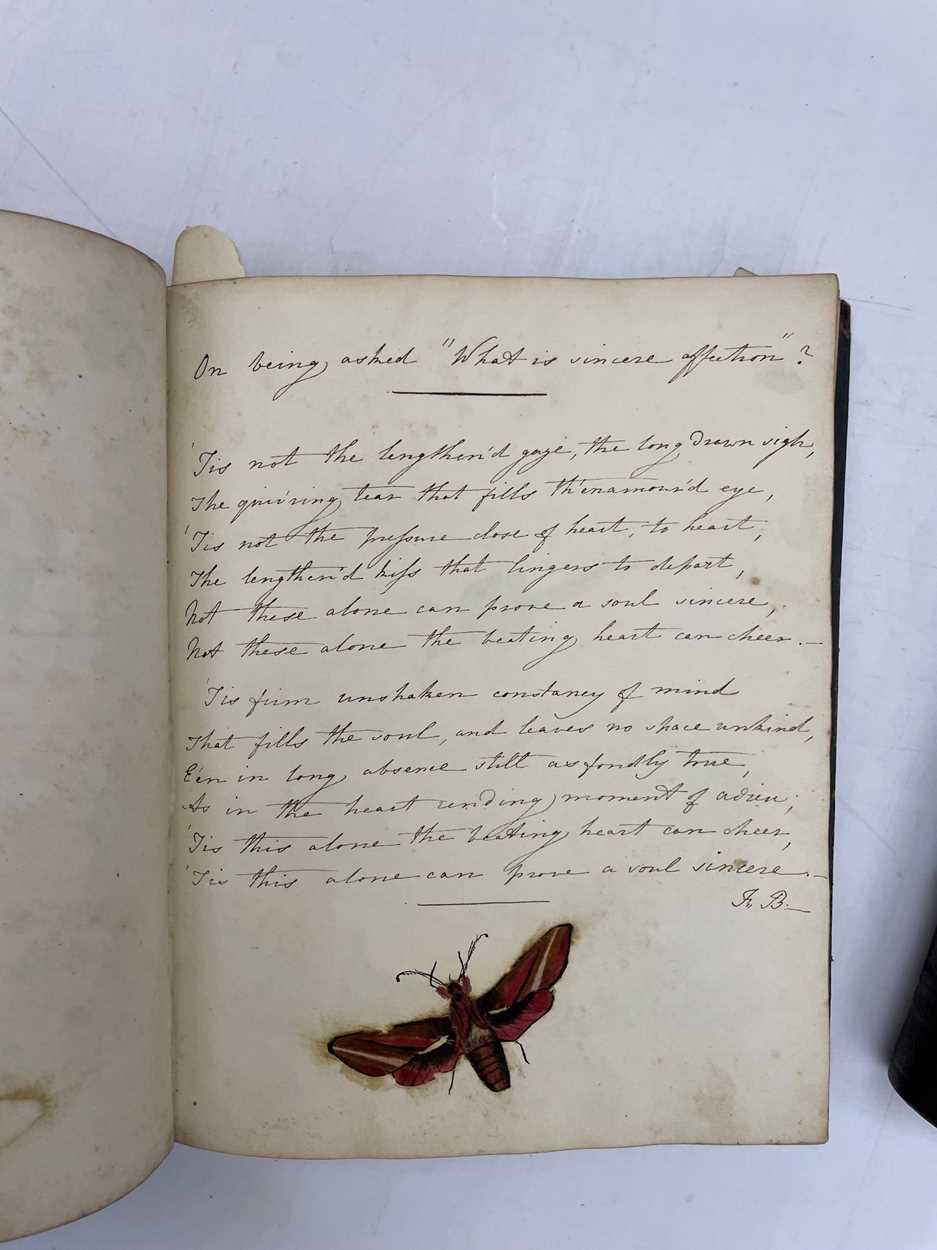 On being asked "What is sincere affection"?
'Tis not the lengthen'd gaze, the long drawn sigh,
The quiv'ring tear that fills th'enamour'd eye,
'Tis not the pressure close of heart, to heart,
The lengthen'd kiss that lingers to depart,
Not these alone can prove a soul sincere,
Not these alone the beating heart can cheer.—
'Tis firm unshaken constancy of mind
That fills the soul, and leaves no space unkind,
E'en in long absence still as fondly true,
As in the heart rending moment of adieu;
'Tis this alone the beating heart can cheer,
'Tis this alone can prove a soul sincere.—
F. B.—